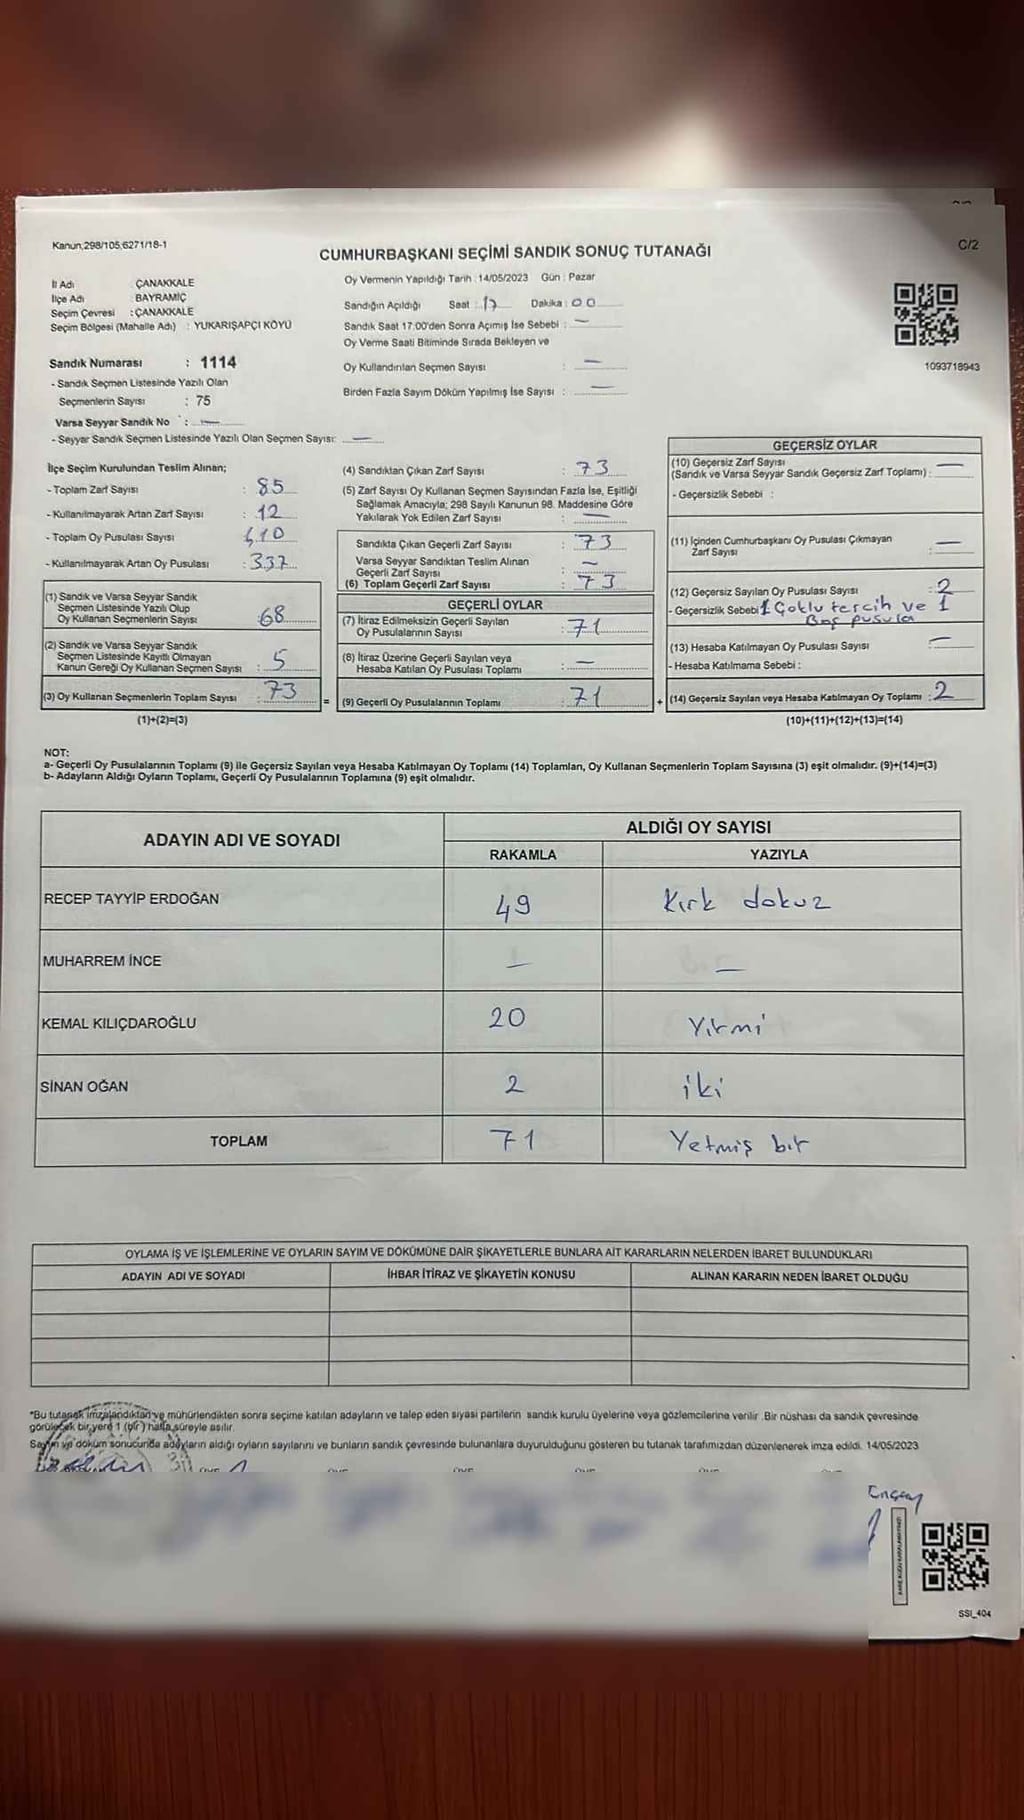 Kanun,298/105,6271/18-1
C/2
CUMHURBAŞKANI SEÇİMİ SANDIK SONUÇ TUTANAĞI
İl Adı : ÇANAKKALE
İlçe Adı : BAYRAMİÇ
Seçim Çevresi : ÇANAKKALE
Seçim Bölgesi (Mahalle Adı) : YUKARIŞAPÇI KÖYÜ
Oy Vermenin Yapıldığı Tarih : 14/05/2023 Gün : Pazar
Sandığın Açıldığı Saat : 17 Dakika : 00
Sandık Saat 17:00'den Sonra Açımış İse Sebebi : —
Oy Verme Saati Bitiminde Sırada Bekleyen ve
Oy Kullandırılan Seçmen Sayısı : —
Birden Fazla Sayım Döküm Yapılmış İse Sayısı : —
1093718943
Sandık Numarası : 1114
- Sandık Seçmen Listesinde Yazılı Olan
Seçmenlerin Sayısı : 75
Varsa Seyyar Sandık No : —
- Seyyar Sandık Seçmen Listesinde Yazılı Olan Seçmen Sayısı: —
İlçe Seçim Kurulundan Teslim Alınan;
- Toplam Zarf Sayısı : 85
- Kullanılmayarak Artan Zarf Sayısı : 12
- Toplam Oy Pusulası Sayısı : 410
- Kullanılmayarak Artan Oy Pusulası : 337
(1) Sandık ve Varsa Seyyar Sandık
Seçmen Listesinde Yazılı Olup
Oy Kullanan Seçmenlerin Sayısı : 68
(2) Sandık ve Varsa Seyyar Sandık
Seçmen Listesinde Kayıtlı Olmayan
Kanun Gereği Oy Kullanan Seçmen Sayısı : 5
(3) Oy Kullanan Seçmenlerin Toplam Sayısı : 73
(1)+(2)=(3)
(4) Sandıktan Çıkan Zarf Sayısı : 73
(5) Zarf Sayısı Oy Kullanan Seçmen Sayısından Fazla İse, Eşitliği
Sağlamak Amacıyla; 298 Sayılı Kanunun 98. Maddesine Göre
Yakılarak Yok Edilen Zarf Sayısı : —
Sandıkta Çıkan Geçerli Zarf Sayısı : 73
Varsa Seyyar Sandıktan Teslim Alınan
Geçerli Zarf Sayısı : —
(6) Toplam Geçerli Zarf Sayısı : 73
GEÇERLİ OYLAR
(7) İtiraz Edilmeksizin Geçerli Sayılan
Oy Pusulalarının Sayısı : 71
(8) İtiraz Üzerine Geçerli Sayılan veya
Hesaba Katılan Oy Pusulası Toplamı : —
= (9) Geçerli Oy Pusulalarının Toplamı : 71 +
GEÇERSİZ OYLAR
(10) Geçersiz Zarf Sayısı
(Sandık ve Varsa Seyyar Sandık Geçersiz Zarf Toplamı) : —
- Geçersizlik Sebebi :
(11) İçinden Cumhurbaşkanı Oy Pusulası Çıkmayan
Zarf Sayısı : —
(12) Geçersiz Sayılan Oy Pusulası Sayısı : 2
- Geçersizlik Sebebi 1 Çoklu tercih ve 1
Boş pusula
(13) Hesaba Katılmayan Oy Pusulası Sayısı : —
- Hesaba Katılmama Sebebi :
(14) Geçersiz Sayılan veya Hesaba Katılmayan Oy Toplamı : 2
(10)+(11)+(12)+(13)=(14)
NOT:
a- Geçerli Oy Pusulalarının Toplamı (9) ile Geçersiz Sayılan veya Hesaba Katılmayan Oy Toplamı (14) Toplamları, Oy Kullanan Seçmenlerin Toplam Sayısına (3) eşit olmalıdır. (9)+(14)=(3)
b- Adayların Aldığı Oyların Toplamı, Geçerli Oy Pusulalarının Toplamına (9) eşit olmalıdır.
ADAYIN ADI VE SOYADI
ALDIĞI OY SAYISI
RAKAMLA YAZIYLA
RECEP TAYYİP ERDOĞAN 49 Kırk dokuz
MUHARREM İNCE — —
KEMAL KILIÇDAROĞLU 20 Yirmi
SİNAN OĞAN 2 iki
TOPLAM 71 Yetmiş bir
OYLAMA İŞ VE İŞLEMLERİNE VE OYLARIN SAYIM VE DÖKÜMÜNE DAİR ŞİKAYETLERLE BUNLARA AİT KARARLARIN NELERDEN İBARET BULUNDUKLARI
ADAYIN ADI VE SOYADI İHBAR İTİRAZ VE ŞİKAYETİN KONUSU ALINAN KARARIN NEDEN İBARET OLDUĞU
*Bu tutanak imzalandıktan ve mühürlendikten sonra seçime katılan adayların ve talep eden siyasi partilerin sandık kurulu üyelerine veya gözlemcilerine verilir. Bir nüshası da sandık çevresinde
görülecek bir yere 1 (bir) hafta süreyle asılır.
Sayım ve döküm sonucunda adayların aldığı oyların sayılarını ve bunların sandık çevresinde bulunanlara duyurulduğunu gösteren bu tutanak tarafımızdan düzenlenerek imza edildi. 14/05/2023
SSI_404